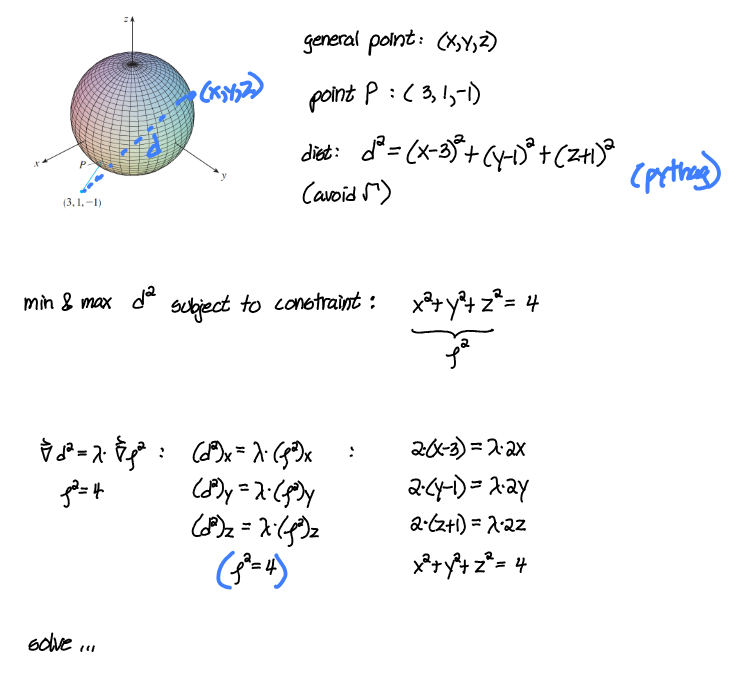 z
(x,y,z)
d
x
P
y
(3, 1, −1)
general point: (x,y,z)
point P : ( 3, 1, -1)
dist: d² = (x-3)² + (y-1)² + (z+1)²
(pythag)
(avoid √)
min & max d² subject to constraint : x² + y² + z² = 4
ρ²
∇⃗ d² = λ· ∇⃗ρ² : (d²)x = λ· (ρ²)x : 2·(x-3) = λ·2x
ρ² = 4 (d²)y = λ·(ρ²)y 2·(y-1) = λ·2y
(d²)z = λ·(ρ²)z 2·(z+1) = λ·2z
(ρ² = 4) x² + y² + z² = 4
solve ...